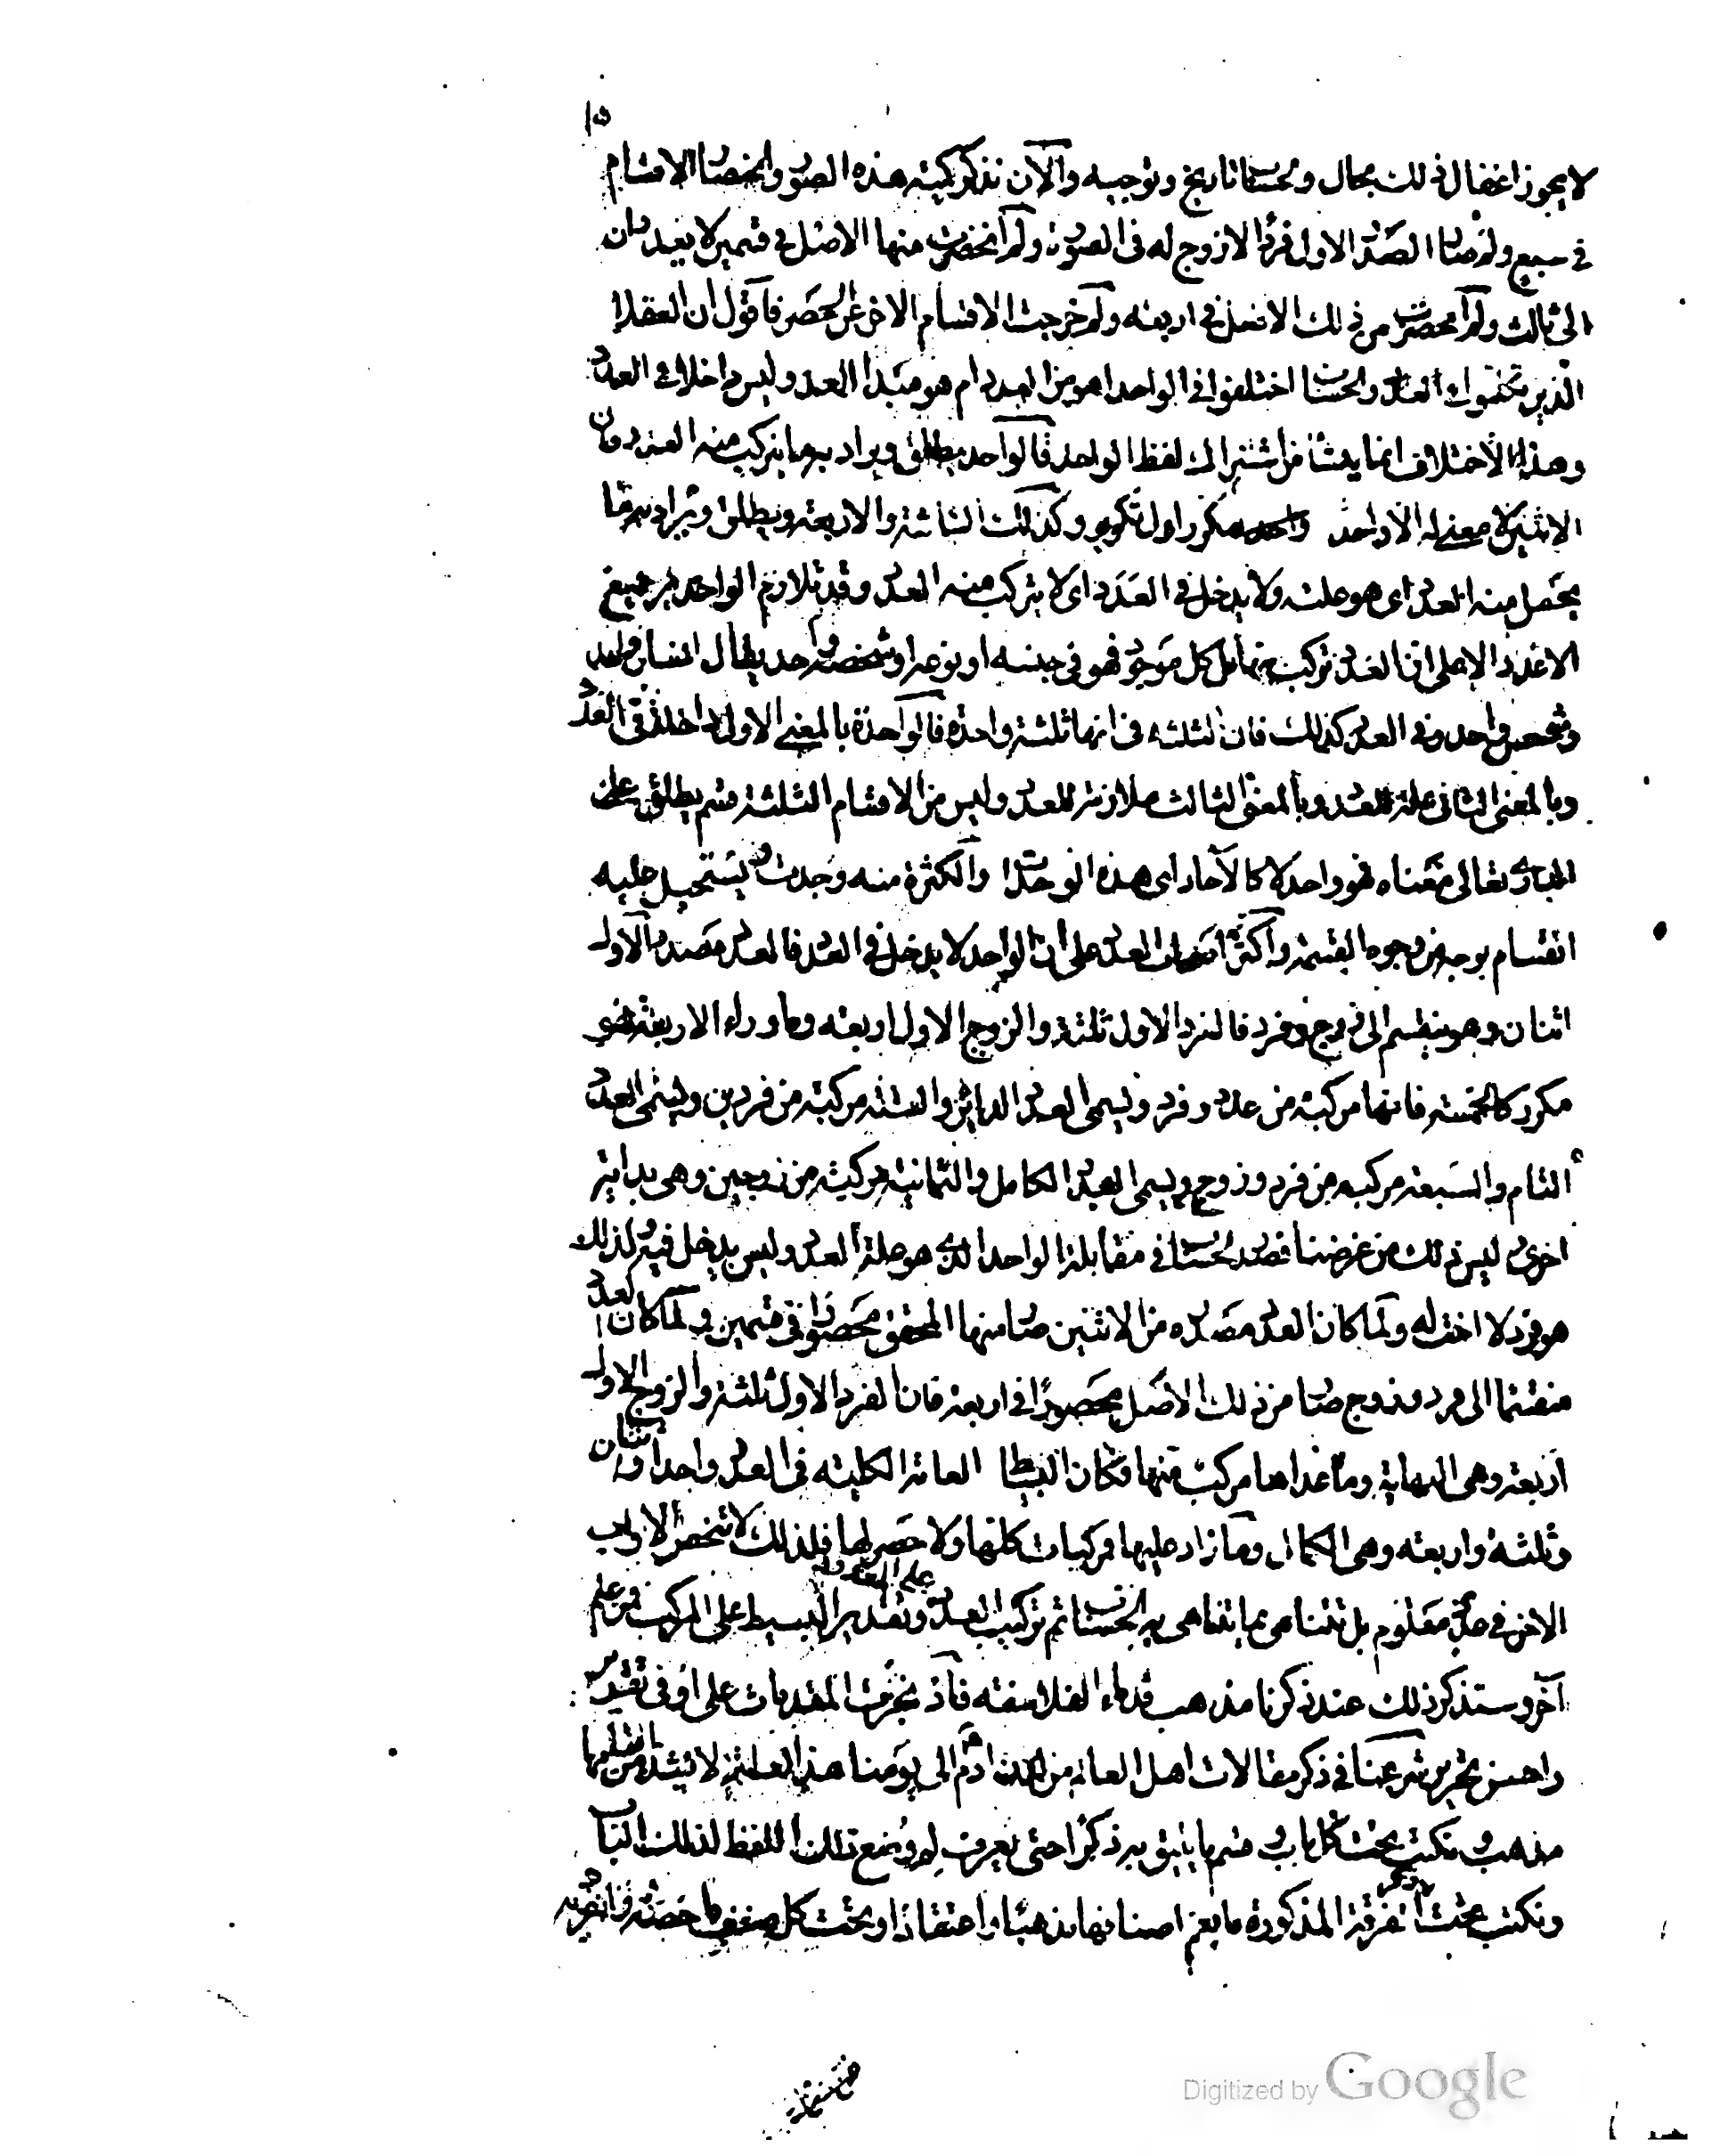 ١٥
لا يجوز اغفال ذلك بحال و محسنا تاريخ وتوجيه والآن نذكر كمية هذه الصور وانحصار الاقسام
في سبع ولم صار الصدر الاول فردا لا زوج له في الصورة ولم انحصرت منها الاصل في قسمين لا يعدوان
الى ثالث ولم انحصرت من ذلك الاصل في اربعة ولم خرجت الاقسام الاخر عن الحصر فاقول ان العقلاء
الذين تكلموا في العدد والحساب اختلفوا في الواحد اهو من العدد ام هو مبدا العدد وليس داخلا في العدد
وهذا الاختلاف انما ينشا من اشتراك لفظ الواحد فالواحد يطلق ويراد به ما يتركب منه العدد فان
الاثنين لا معنى له الا واحد مكرر اول تكرير وكذلك الثلثة والاربعة ويطلق ويراد به ما
يحصل منه العدد اى هو علته ولا يدخل في العدد اى لا يتركب منه العدد وقد تلازم الواحدية جميع
الاعداد لا على ان العدد تركب منها بل كل موجود فهو في جنسه او نوعه او شخصه واحد يقال انسان واحد
وشخص واحد وفي العدد كذلك فان الثلثة في انها ثلثة واحدة فالواحدة بالمعنى الاول داخلة في العدد
وبالمعنى الثانى علة للعدد وبالمعنى الثالث ملازمة للعدد وليس من الاقسام الثلثة قسم يطلق على
البارى تعالى معناه فهو واحد لا كالآحاد اى هذه الوحدات والكثرة منه وجدت ويستحيل عليه
انقسام بوجه من وجوه القسمة واكثر اصحاب العدد على ان الواحد لا يدخل في العدد فالعدد مصدره الاول
اثنان وهو ينقسم الى زوج وفرد فالفرد الاول ثلثة والزوج الاول اربعة وما وراء الاربعة فهو
مكرر كالخمسة فانها مركبة من عدد وفرد ويسمى العدد الدائر والستة مركبة من فردين ويسمى العدد
التام والسبعة مركبة من فرد وزوج ويسمى العدد الكامل والثمانية مركبة من زوجين وهي بداية
اخرى ليس ذلك من غرضنا فصدر الحساب في مقابلة الواحد الذى هو علة العدد وليس يدخل فيه ولذلك
هو فرد لا اخت له ولما كان العدد مصدره من الاثنين صار منها المحقق محصورا في قسمين ولما كان العدد
منقسما الى فرد وزوج صار من ذلك الاصل محصورا في اربعة فان الفرد الاول ثلثة والزوج الاول
اربعة وهى النهاية وما عداها مركب منها فكان البسائط العامة الكلية في العدد واحدا واثنان
وثلثة واربعة وهى الكمال وما زاد عليها فركبات كلها ولا حصر لها فلذلك لا تنحصر الابواب
الاخر في عدد معلوم بل تتناهى بما يتناهى به الحساب ثم تركيب العدد على المعدود وتقدير البسيط على المركب فمن علم
آخر وستذكر ذلك عند ذكرنا مذهب قدماء الفلاسفة فاذ نجزت المقدمات على اوفى تقدير
واحسن تحرير شرعنا في ذكر مقالات اهل العالم من لدن آدم الى يومنا هذا لعله لا يشذ من اقسامها
مذهب ونكتب تحت كل باب وقسم ما يليق به ذكرا حتى يعرف لم وضع ذلك اللفظ لذلك الباب
ونكتب تحت الفرقة المذكورة ما يعم اصنافها مذهبا واعتقادا وتحت كل صنف ما خصه وانفرد به
Digitized by Google